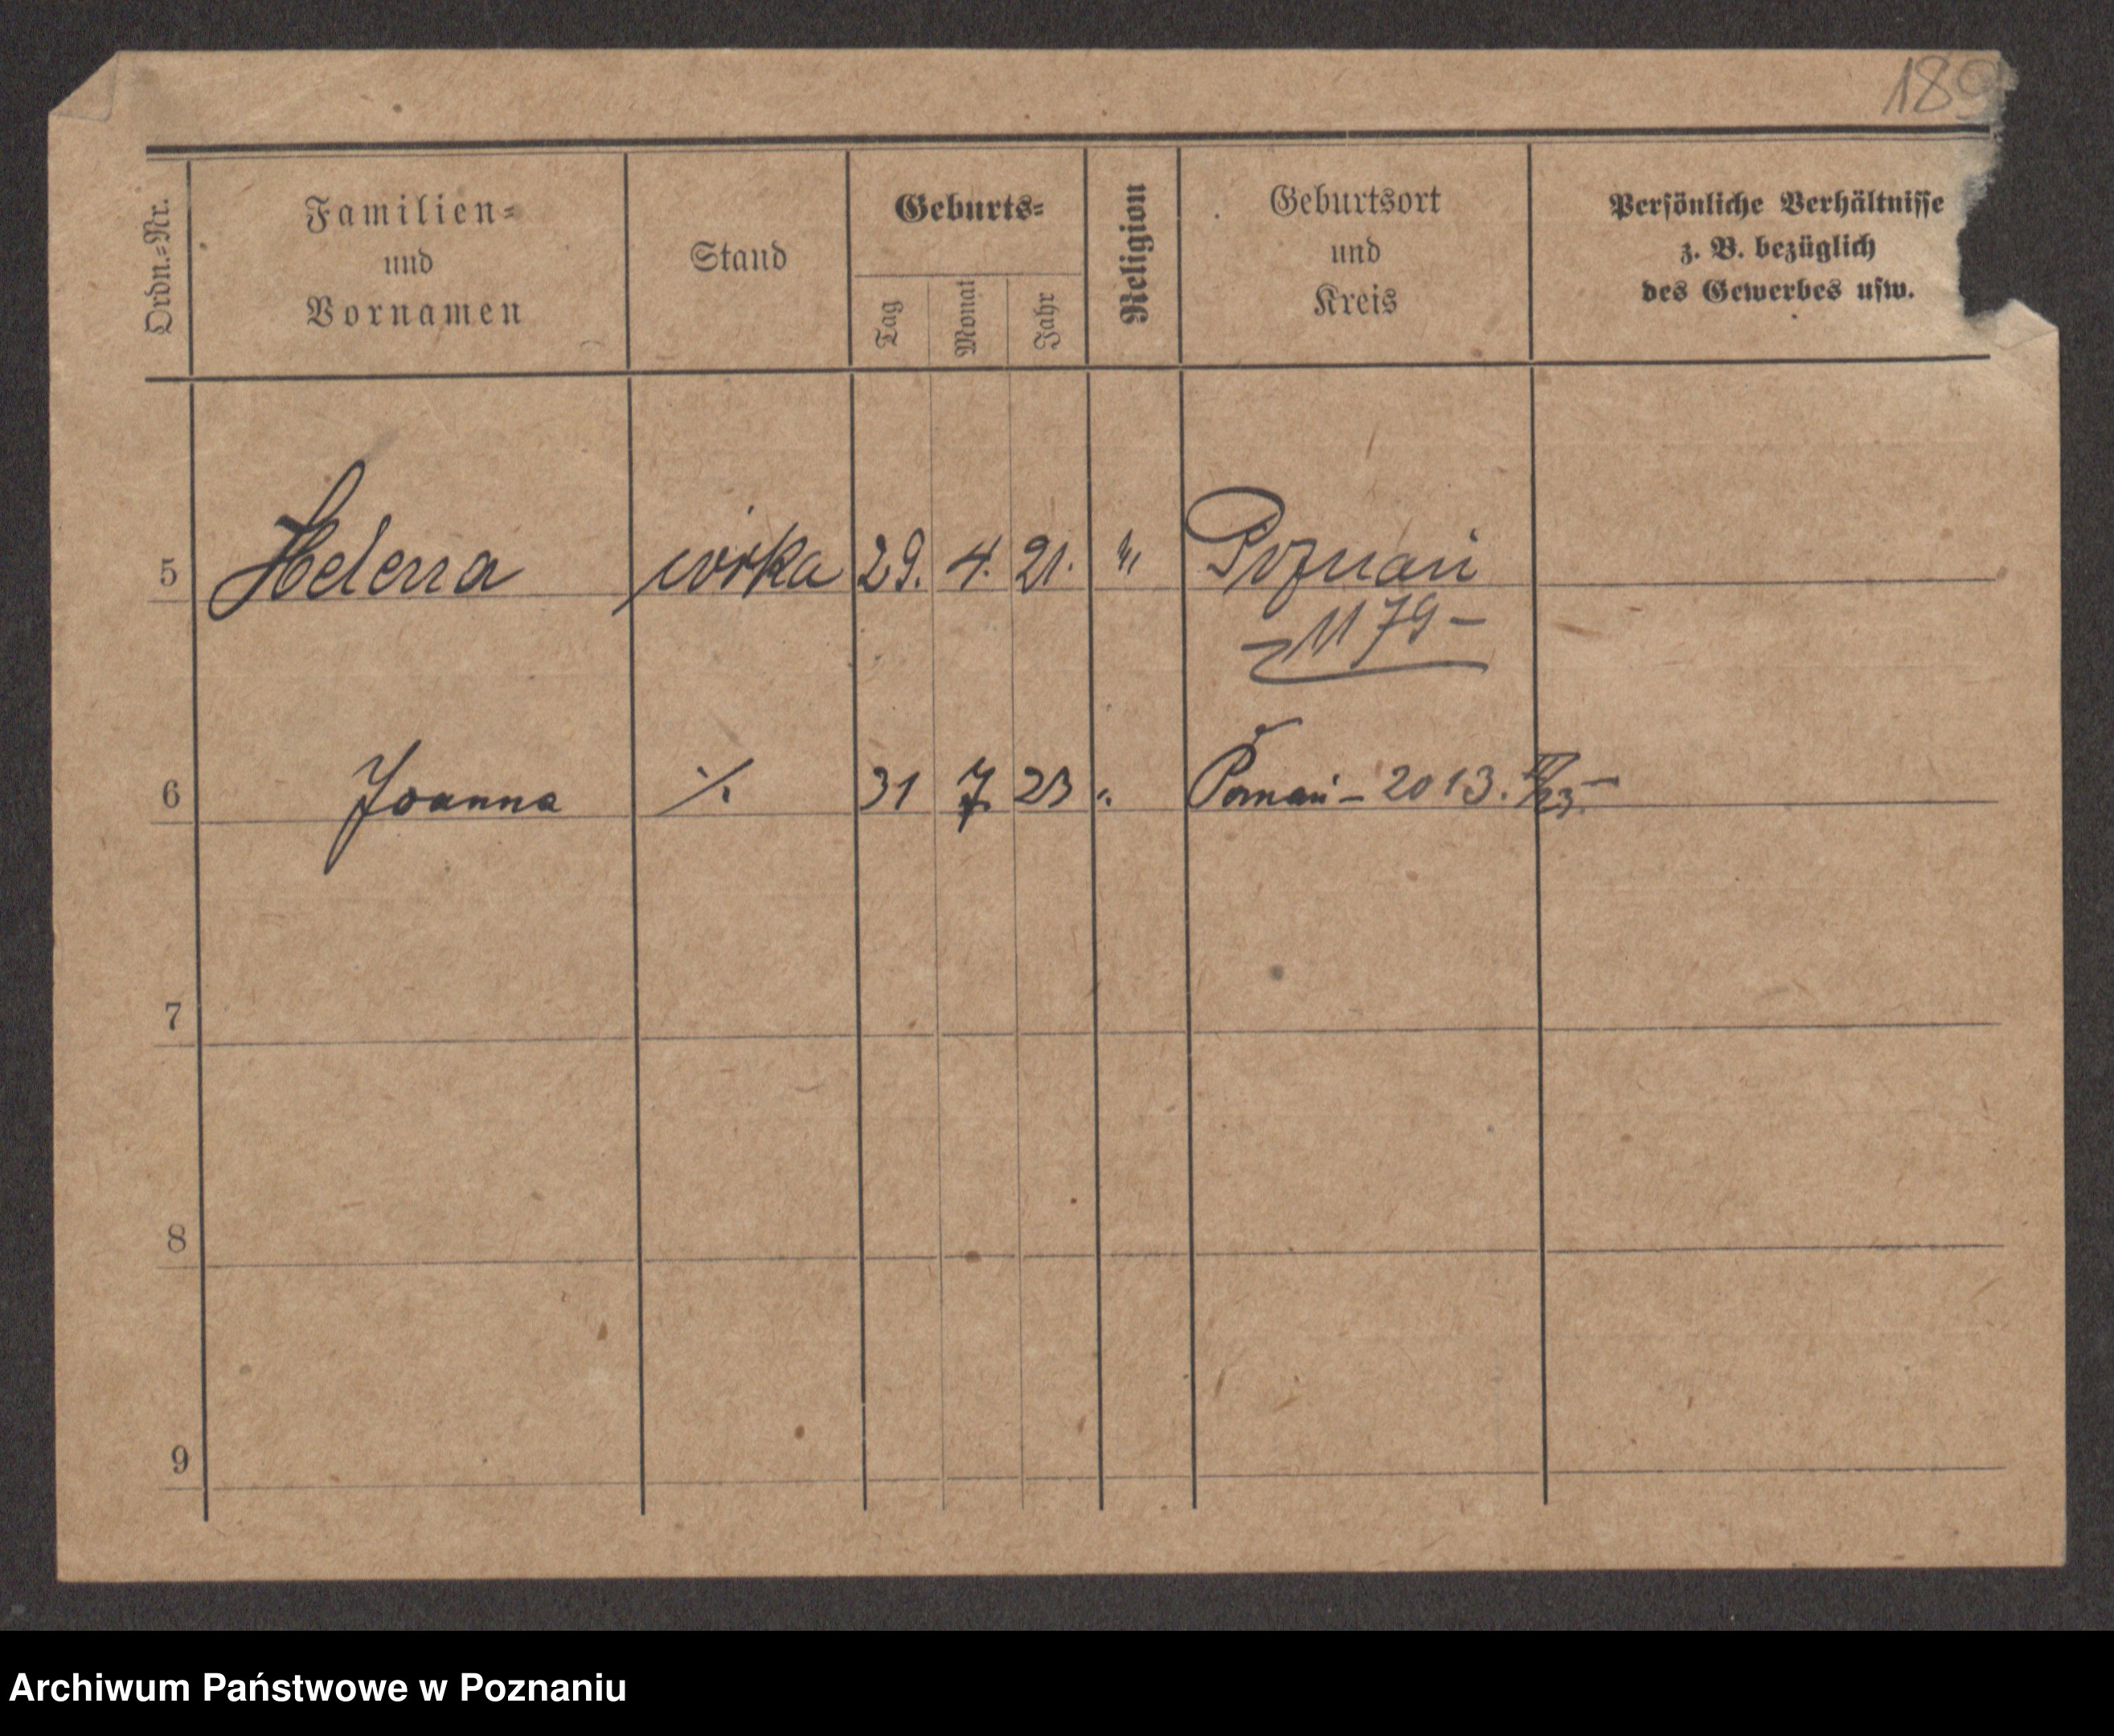 189
Ordn.=Nr.
Familien=
und
Vornamen
Stand
Geburts=
Tag
Monat
Jahr
Religion
Geburtsort
und
Kreis
Persönliche Verhältnisse
z. B. bezüglich
des Gewerbes usw.
5 Helena córka 29. 4. 21. " Poznań
1179 –
6 Joanna ./. 31 7 23 " Poznań – 2013.
7
8
9
Archiwum Państwowe w Poznaniu